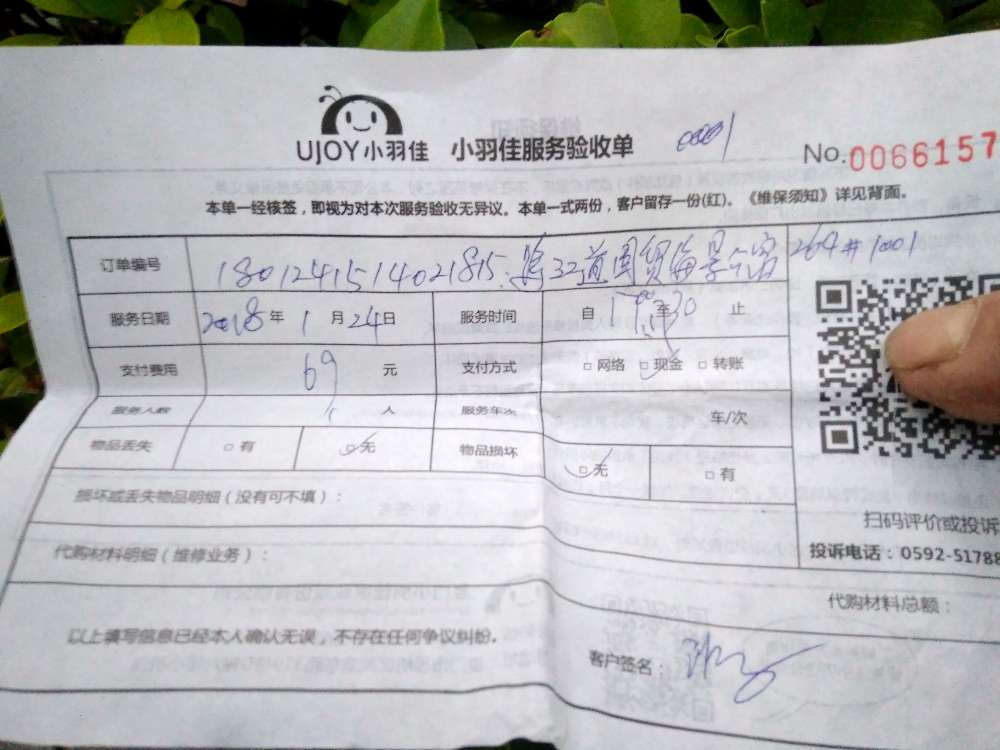 UJOY小羽佳 小羽佳服务验收单 00001 No.0066157
本单一经核签，即视为对本次服务验收无异议。本单一式两份，客户留存一份(红)。《维保须知》详见背面。
订单编号 1801241514021815. 32道国贸海景公寓 264#1001
服务日期 2018年1月24日 服务时间 自 止
支付费用 69 元 支付方式 □网络 □现金 □转账
服务人数 1 人 服务车次 车/次
物品丢失 □有 □无 物品损坏 □无 □有
损坏或丢失物品明细（没有可不填）：
扫码评价或投诉
代购材料明细（维修业务）：
投诉电话：0592-51788
代购材料总额：
以上填写信息已经本人确认无误，不存在任何争议纠纷。
客户签名：